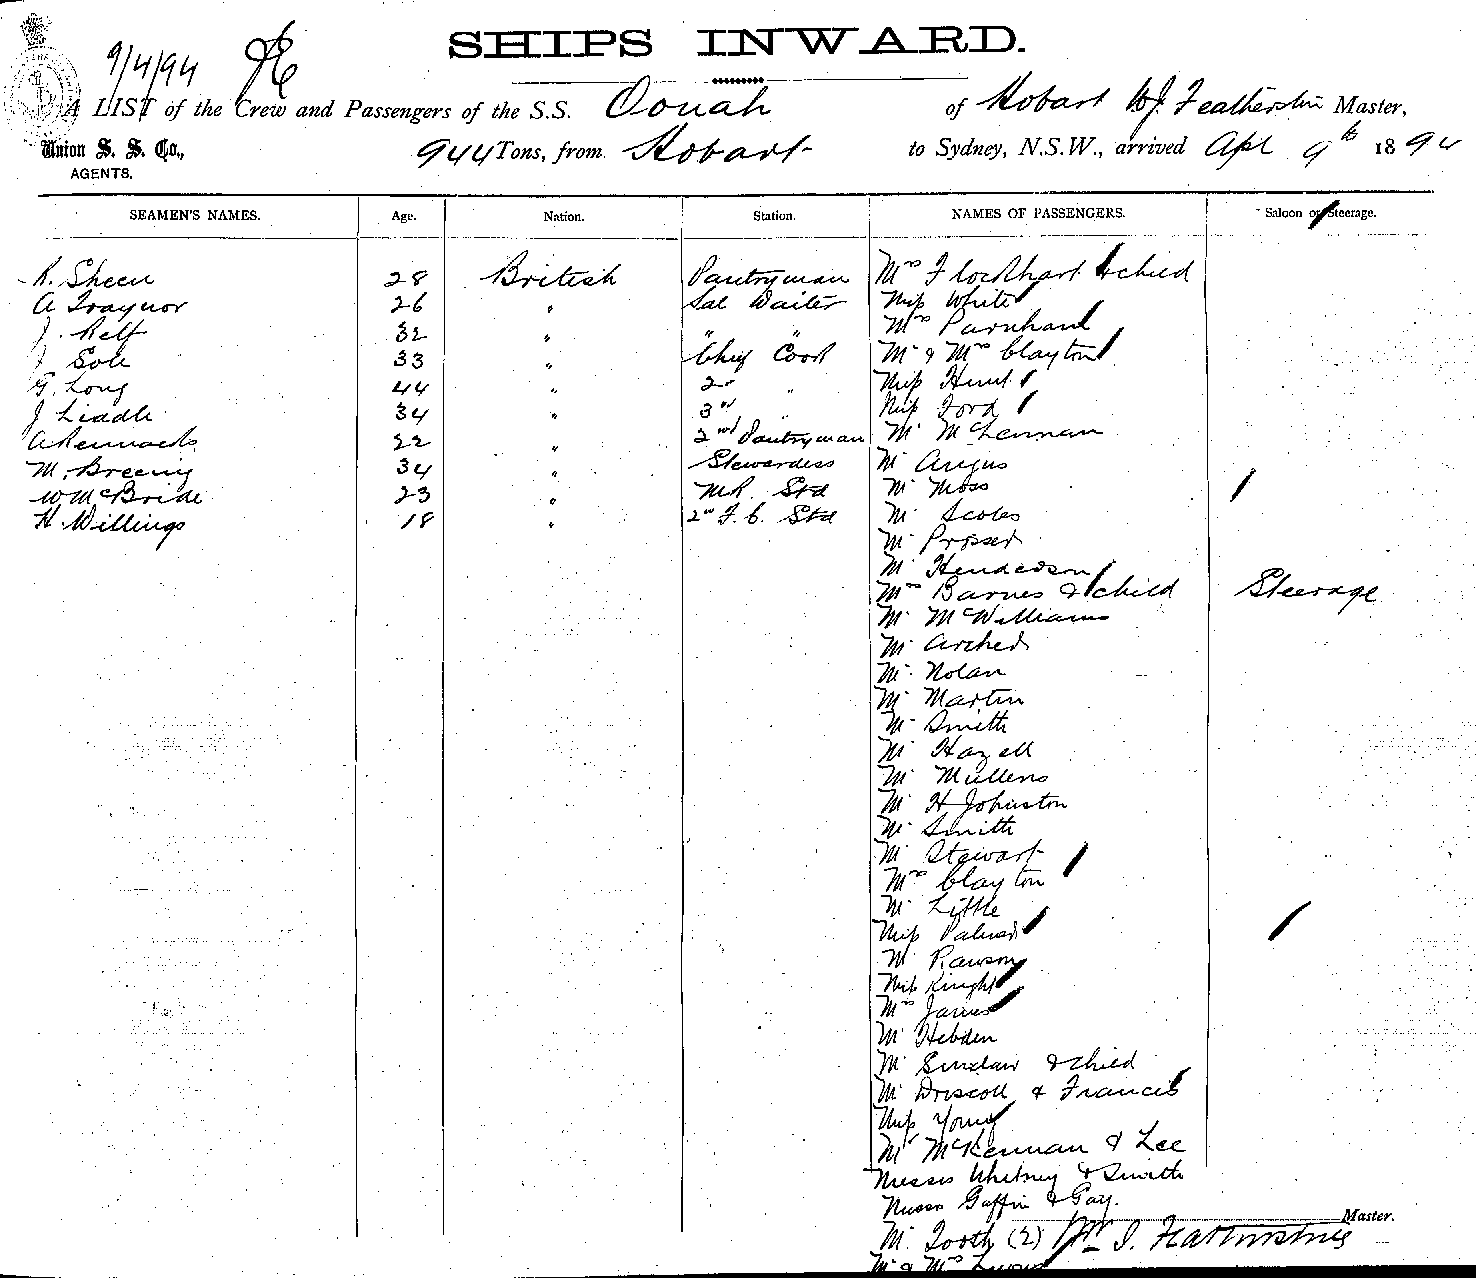 SHIPS INWARD.
9/4/94
A LIST of the Crew and Passengers of the S.S. Oonah of Hobart W.J. Featherstone Master,
Union S. S. Co., AGENTS. 944 Tons, from Hobart to Sydney, N.S.W., arrived Apl 9th 1894
SEAMEN'S NAMES. Age. Nation. Station. NAMES OF PASSENGERS. Saloon or Steerage.
R. Sheen 28 British Pantryman Mrs F Lockhart & child
A Traynor 26 " Sal Waiter Miss White
J. Relf 32 " " " Mrs
J Sole 33 " Chief Cook Mr & Mrs Clayton
G. Long 44 " 2nd " Miss Hunt
J Liadle 34 " 3rd " Miss Ford
22 " 2nd Pantryman Mr McLennan
M. Breeny 34 " Stewardess Mr Angus
W McBride 23 " M.R. Std Mr Moss
H. Willings 18 " 2nd F.C. Std Mr Scoles
Mr Prosser
Mr Henderson
Mrs Barnes & child Steerage
Mr McWilliams
Mr Archer
Mr Nolan
Mr Martin
Mr Smith
Mr Hazell
Mr Mullens
Mr H Johnston
Mr Smith
Mr Stewart
Mrs Clayton
Mr Little
Miss Palmer
Mr Rawson
Miss Knight
Mrs James
Mr Hebden
Mr Sinclair & child
Mr Driscoll & Francis
Miss Young
Mr McKennan & Lee
Messrs Whitney & Smith
Messrs Gaffin & Gay.
Master.
Mr Tooth (2) Wm J. Featherstone
Mr & Mrs